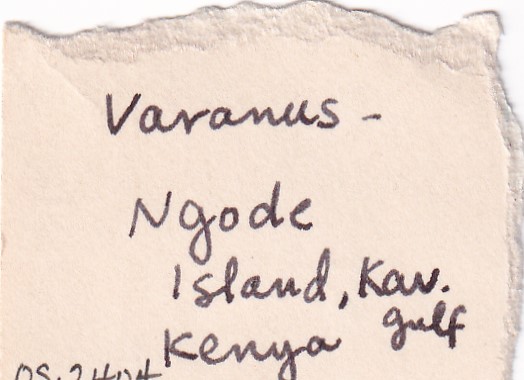 Varanus -
Ngode
Island, Kav.
gulf
Kenya
OS.2404